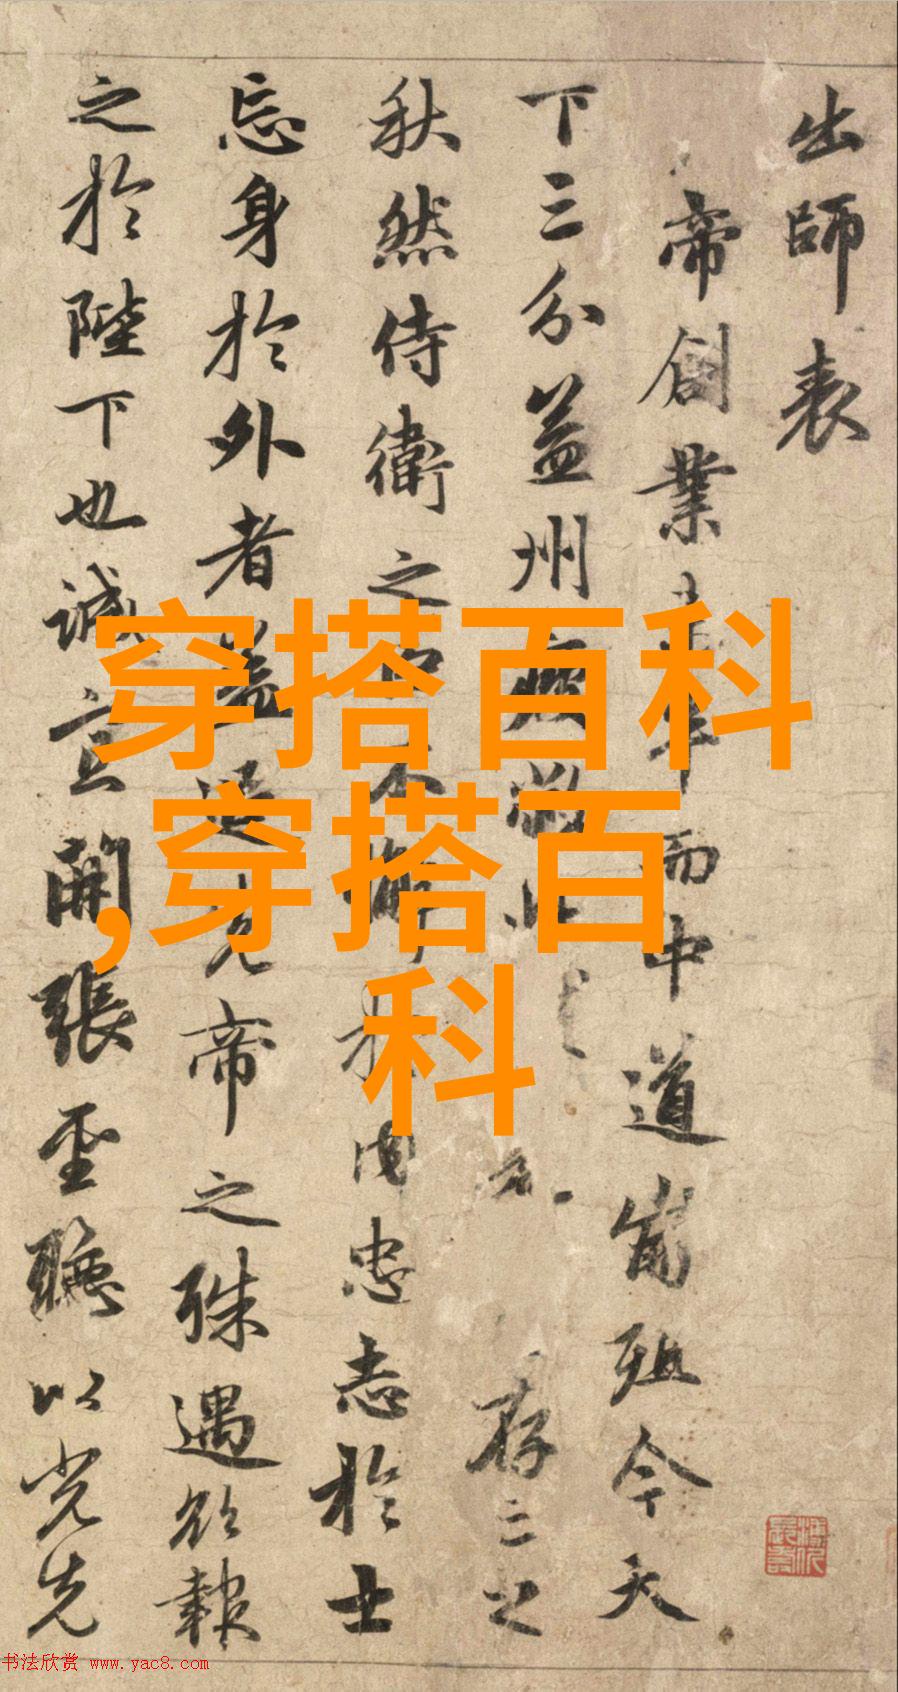 出師表
帝創業未半而中道崩殂今天
下三分益州疲弊此 存亡之
秋然侍衛之臣不懈於内忠志於士
忘身於外者蓋追先帝之殊遇欲報
之於陛下也誠宜開張聖聽以光先
穿搭百科
,穿搭百
科
书法欣赏 www.yac8.com